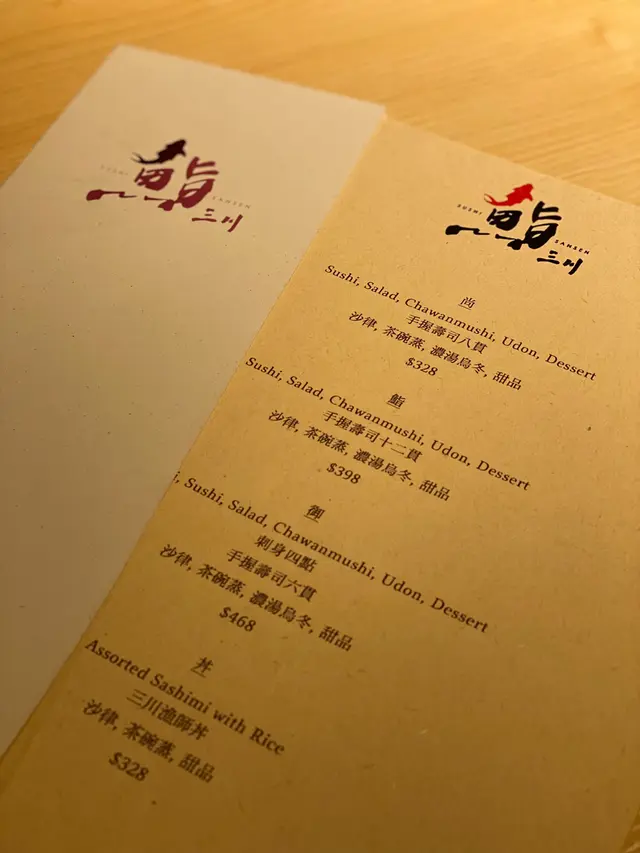 SUSHI
鮨
SANSEN
三川
SUSHI
鮨
SANSEN
三川
尚
Sushi, Salad, Chawanmushi, Udon, Dessert
手握壽司八貫
沙律, 茶碗蒸, 濃湯烏冬, 甜品
$328
鮨
Sushi, Salad, Chawanmushi, Udon, Dessert
手握壽司十二貫
沙律, 茶碗蒸, 濃湯烏冬, 甜品
$398
御
i, Sushi, Salad, Chawanmushi, Udon, Dessert
刺身四點
手握壽司六貫
沙律, 茶碗蒸, 濃湯烏冬, 甜品
$468
丼
Assorted Sashimi with Rice
三川漁師丼
沙律, 茶碗蒸, 甜品
$328